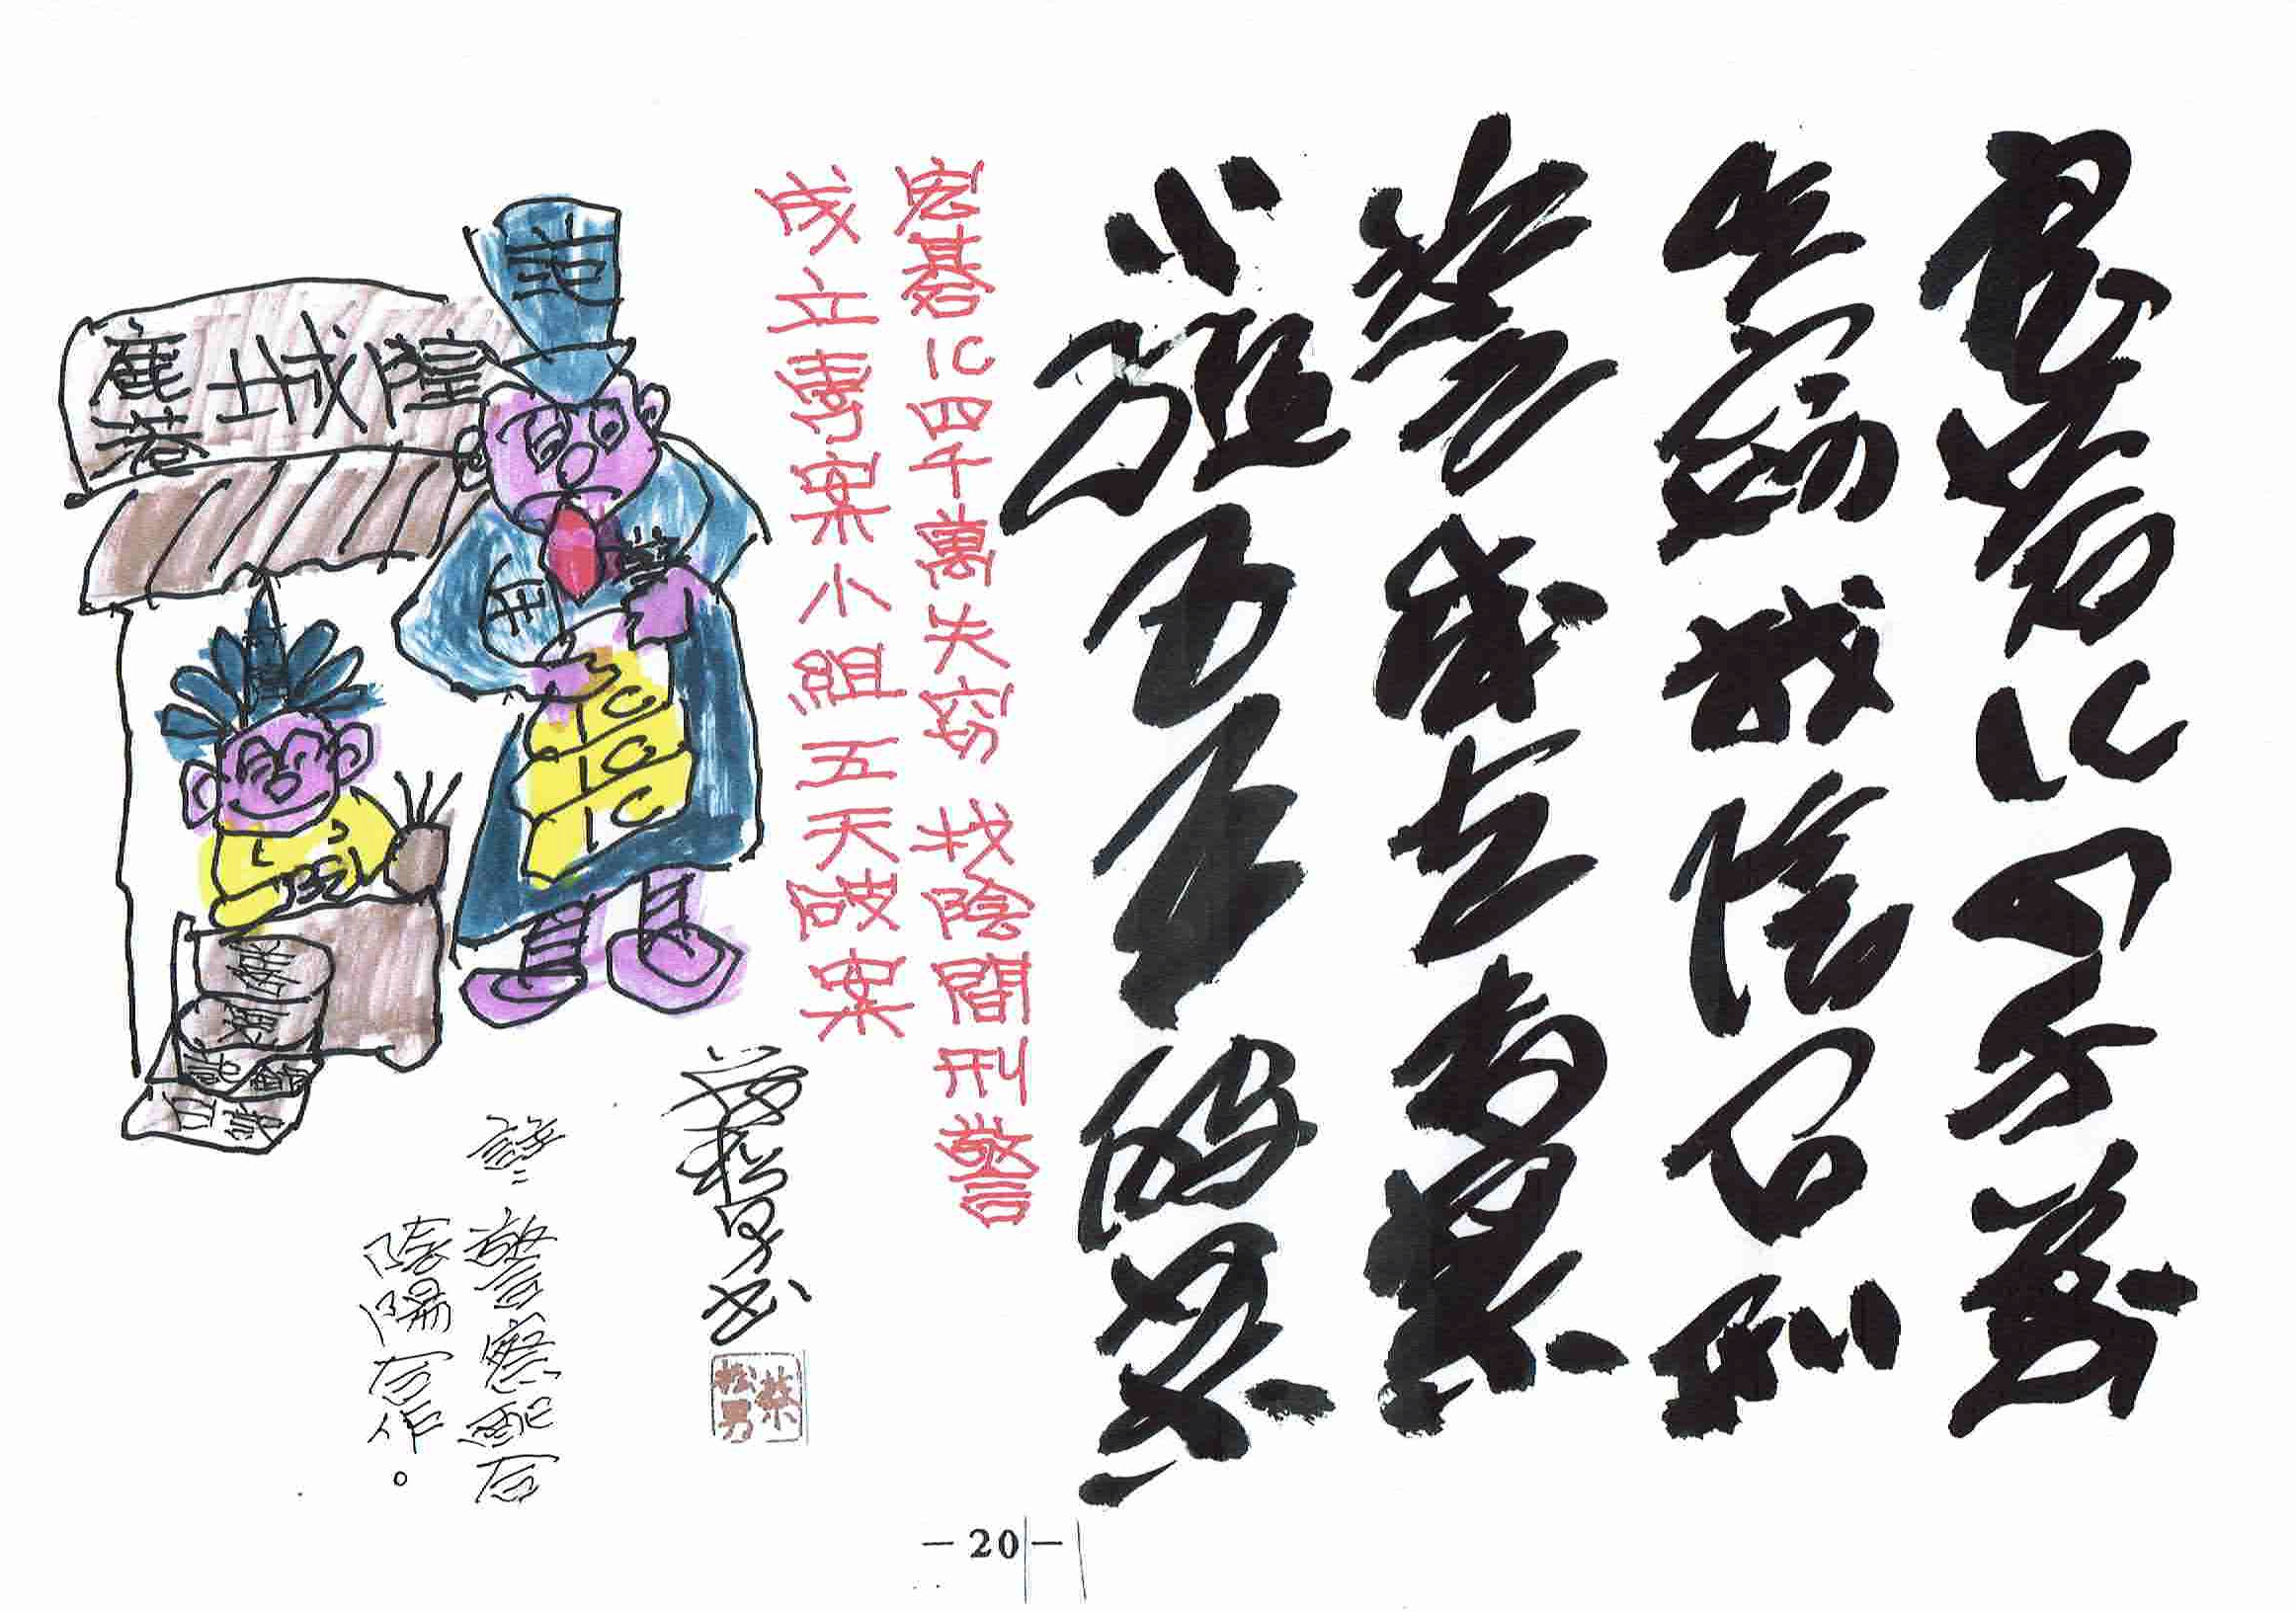 宏碁IC四千萬
失竊找陰間刑
警成立專案
小組五天破案
宏碁IC四千萬失竊 找陰間刑警
成立專案小組五天破案
鹿港城隍
IC
IC
IC
蔡松男書
蔡松男
警察配合
陰陽合作。
－20－